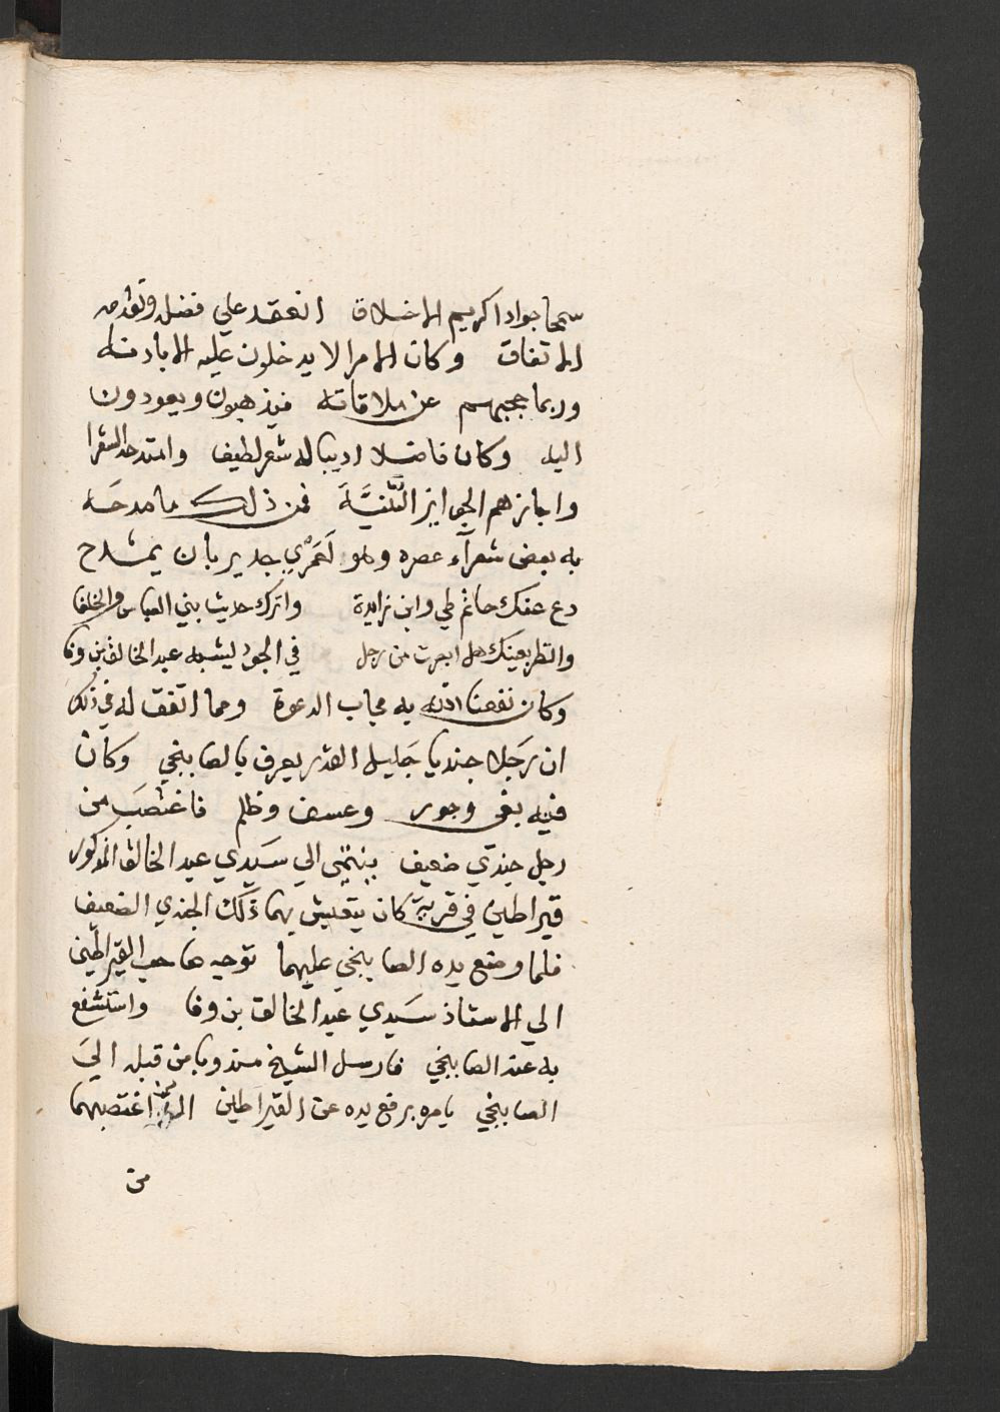 سمحا جوادا كريم الاخلاق انعقد علي فضله وتقدمه
الاتفاق وكان الامرا لا يدخلون عليه الا باذنه
وربما حجبهم عن ملاقاته فيذهبون ويعودون
اليه وكان فاضلا اديبا له شعر لطيف وامتدحه الشعرا
واجازهم الجوايز السَّنيَّة فمن ذلك ما مدحَه
به بعض شعرآء عصره وهو لَعَمْري جدير بان يمتدح
دع عنك حاتم طي وابن زايدة واترك حديث بني العباس والخلفا
وانظر بعينك هل ابصرت من رجل في الجود يشبه عبد الخالق بن وفا
وكان نفعنا الله به مجاب الدعوة ومما اتفق له في ذلك
ان رَجلا جنديا جَليل القدر يعرف بالصابنجي وكان
فيه بغي وجور وعسف وظلم فاغتصَب من
رجل جندي ضعيف ينتمي الي سَيدي عبد الخالق المذكور
قيراطين في قرية كان يتعيش بهما ذلك الجندي الضعيف
فلما وضع يده الصابنجي عليهما توجه صاحب القيراطين
الي الاستاذ سَيدي عبد الخالق بن وفا واستشفع
به عند الصابنجي فارسل الشيخ مندوبا من قبله اليَ
الصابنجي يامره برفع يده عن القيراطين اغتصبهما
من